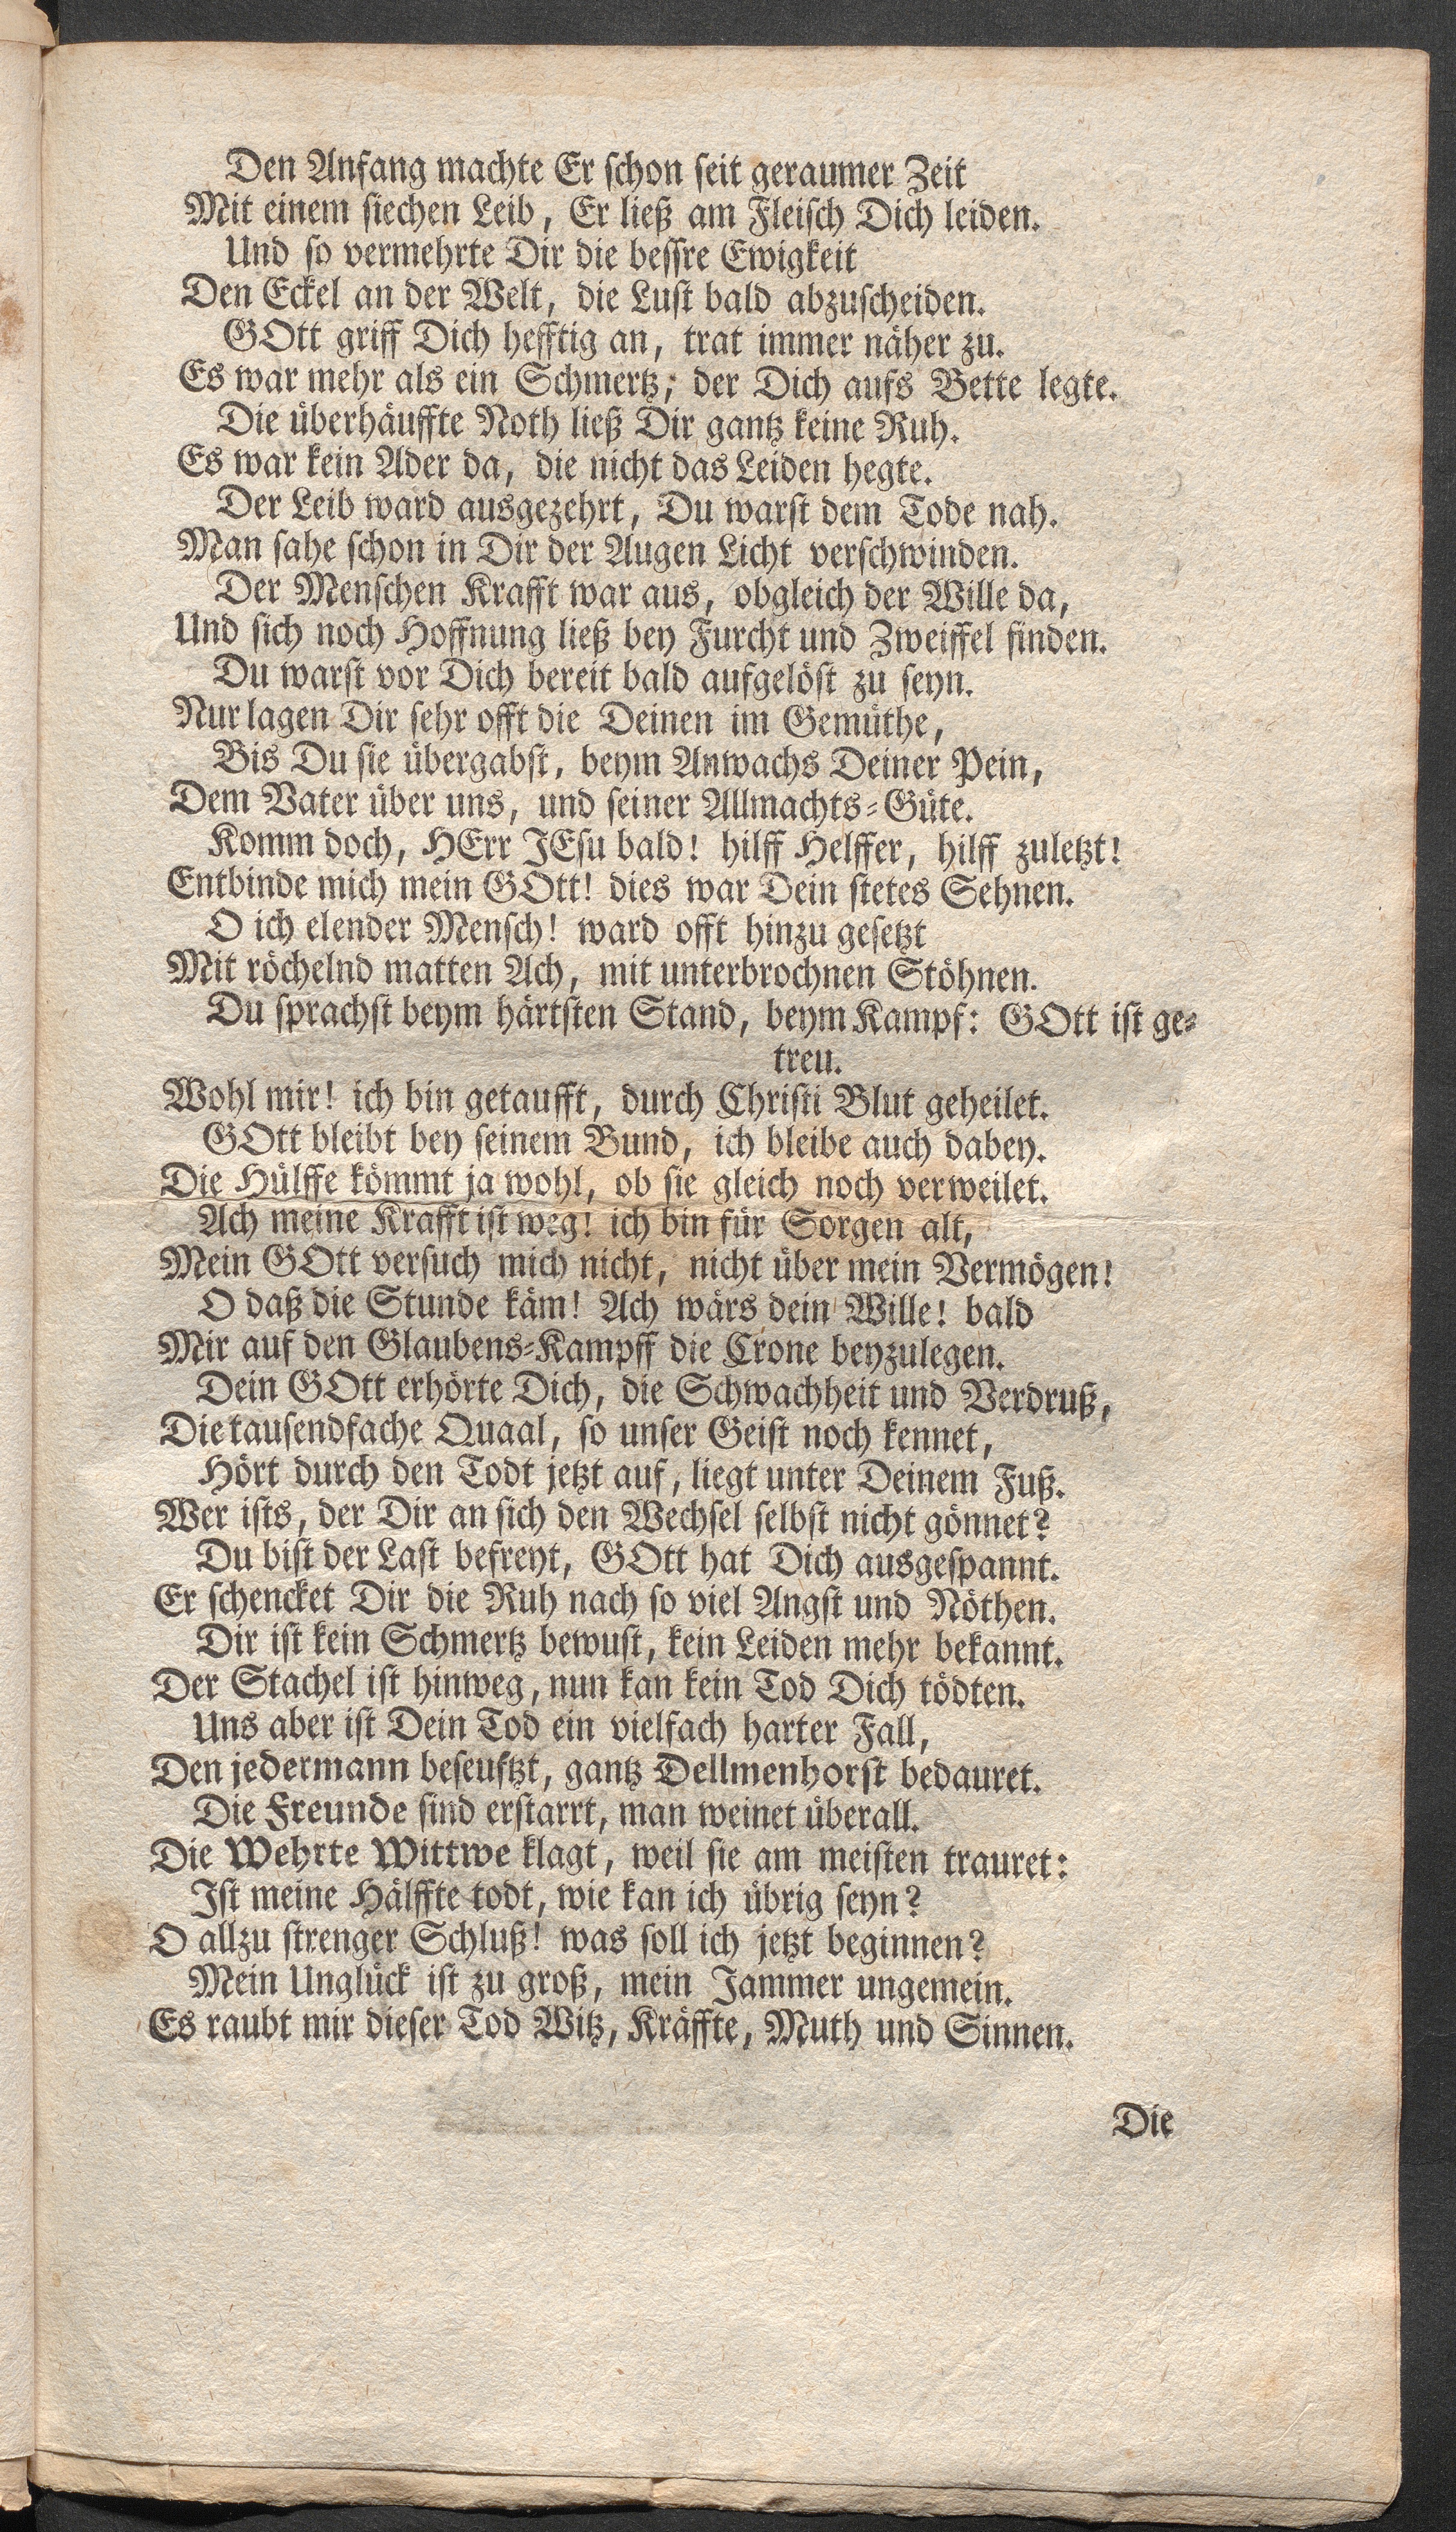 Den Anfang machte Er schon seit geraumer Zeit
Mit einem siechen Leib, Er ließ am Fleisch Dich leiden.
Und so vermehrte Dir die bessre Ewigkeit
Den Eckel an der Welt, die Lust bald abzuscheiden.
GOtt griff Dich hefftig an, trat immer näher zu.
Es war mehr als ein Schmertz, der Dich aufs Bette legte.
Die überhäuffte Noth ließ Dir gantz keine Ruh.
Es war kein Ader da, die nicht das Leiden hegte.
Der Leib ward ausgezehrt, Du warst dem Tode nah.
Man sahe schon in Dir der Augen Licht verschwinden.
Der Menschen Krafft war aus, obgleich der Wille da,
Und sich noch Hoffnung ließ bey Furcht und Zweiffel finden.
Du warst vor Dich bereit bald aufgelöst zu seyn.
Nur lagen Dir sehr offt die Deinen im Gemüthe,
Bis Du sie übergabst, beym Anwachs Deiner Pein,
Dem Vater über uns, und seiner Allmachts-Güte.
Komm doch, HErr JEsu bald! hilff Helffer, hilff zuletzt!
Entbinde mich mein GOtt! dies war Dein stetes Sehnen.
O ich elender Mensch! ward offt hinzu gesetzt
Mit röchelnd matten Ach, mit unterbrochnen Stöhnen.
Du sprachst beym härtsten Stand, beym Kampf: GOtt ist ge-
treu.
Wohl mir! ich bin getaufft, durch Christi Blut geheilet.
GOtt bleibt bey seinem Bund, ich bleibe auch dabey.
Die Hülffe kömmt ja wohl, ob sie gleich noch verweilet.
Ach meine Krafft ist weg! ich bin für Sorgen alt,
Mein GOtt versuch mich nicht, nicht über mein Vermögen!
O daß die Stunde käm! Ach wärs dein Wille! bald
Mir auf den Glaubens-Kampff die Crone beyzulegen.
Dein GOtt erhörte Dich, die Schwachheit und Verdruß,
Die tausendfache Quaal, so unser Geist noch kennet,
Hört durch den Todt jetzt auf, liegt unter Deinem Fuß.
Wer ists, der Dir an sich den Wechsel selbst nicht gönnet?
Du bist der Last befreyt, GOtt hat Dich ausgespannt.
Er schencket Dir die Ruh nach so viel Angst und Nöthen.
Dir ist kein Schmertz bewust, kein Leiden mehr bekannt.
Der Stachel ist hinweg, nun kan kein Tod Dich tödten.
Uns aber ist Dein Tod ein vielfach harter Fall,
Den jedermann beseuftzt, gantz Dellmenhorst bedauret.
Die Freunde sind erstarrt, man weinet überall.
Die Wehrte Wittwe klagt, weil sie am meisten trauret:
Ist meine Hälffte todt, wie kan ich übrig seyn?
O allzu strenger Schluß! was soll ich jetzt beginnen?
Mein Unglück ist zu groß, mein Jammer ungemein.
Es raubt mir dieser Tod Witz, Kräffte, Muth und Sinnen.
Die